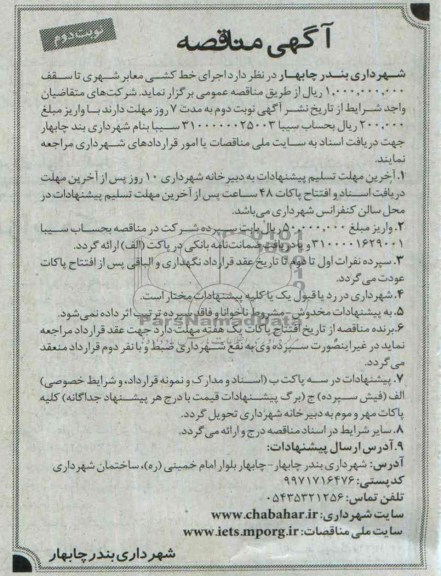 نوبت دوم
آگهی مناقصه
شهرداری بندر چابهار در نظر دارد اجرای خط کشی معابر شهری تا سقف
۱,۰۰۰,۰۰۰,۰۰۰ ریال از طریق مناقصه عمومی برگزار نماید. شرکت‌های متقاضیان
واجد شرایط از تاریخ نشر آگهی نوبت دوم به مدت ۷ روز مهلت دارند با واریز مبلغ
۲۰۰,۰۰۰ ریال بحساب سیبا ۳۱۰۰۰۰۰۰۲۵۰۰۳ سیبا بنام شهرداری بند چابهار
جهت دریافت اسناد به سایت ملی مناقصات یا امور قراردادهای شهرداری مراجعه
نمایند.
۱. آخرین مهلت تسلیم پیشنهادات به دبیرخانه شهرداری ۱۰ روز پس از آخرین مهلت
دریافت اسناد و افتتاح پاکات ۴۸ ساعت پس از آخرین مهلت تسلیم پیشنهادات در
محل سالن کنفرانس شهرداری می‌باشد.
۲. واریز مبلغ ۵۰,۰۰۰,۰۰۰ ریال بابت سپرده شرکت در مناقصه بحساب سیبا
۳۱۰۰۰۰۱۶۲۹۰۰۱ و یا دریافت ضمانت‌نامه بانکی در پاکت (الف) ارائه گردد.
۳. سپرده نفرات اول تا سوم تا تاریخ عقد قرارداد نگهداری و الباقی پس از افتتاح پاکات
عودت می‌گردد.
۴. شهرداری در رد یا قبول یک یا کلیه پیشنهادات مختار است.
۵. به پیشنهادات مخدوش-مشروط ناخوانا و فاقد سپرده ترتیب اثر داده نمی‌شود.
۶. برنده مناقصه از تاریخ افتتاح پاکات یک هفته مهلت دارد جهت عقد قرارداد مراجعه
نماید در غیر اینصورت سپرده وی به نفع شهرداری ضبط و با نفر دوم قرارداد منعقد
می‌گردد.
۷. پیشنهادات در سه پاکت ب (اسناد و مدارک و نمونه قرارداد، و شرایط خصوصی)
الف (فیش سپرده) ج (برگ پیشنهادات قیمت با درج هر پیشنهاد جداگانه) کلیه
پاکات مهر و موم به دبیرخانه شهرداری تحویل گردد.
۸. سایر شرایط در اسناد مناقصه درج و ارائه می‌گردد.
۹. آدرس ارسال پیشنهادات:
آدرس: شهرداری بندر چابهار-چابهار بلوار امام خمینی (ره)، ساختمان شهرداری
کدپستی: ۹۹۷۱۷۱۶۴۷۶
تلفن تماس: ۰۵۴۳۵۳۲۱۲۵۶
سایت شهرداری: www.chabahar.ir
سایت ملی مناقصات: www.iets.mporg.ir
شهرداری بندر چابهار